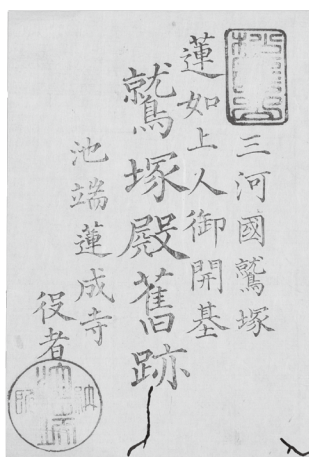 三河國鷲塚
蓮如上人御開基
鷲塚殿舊跡
池端蓮成寺
役者